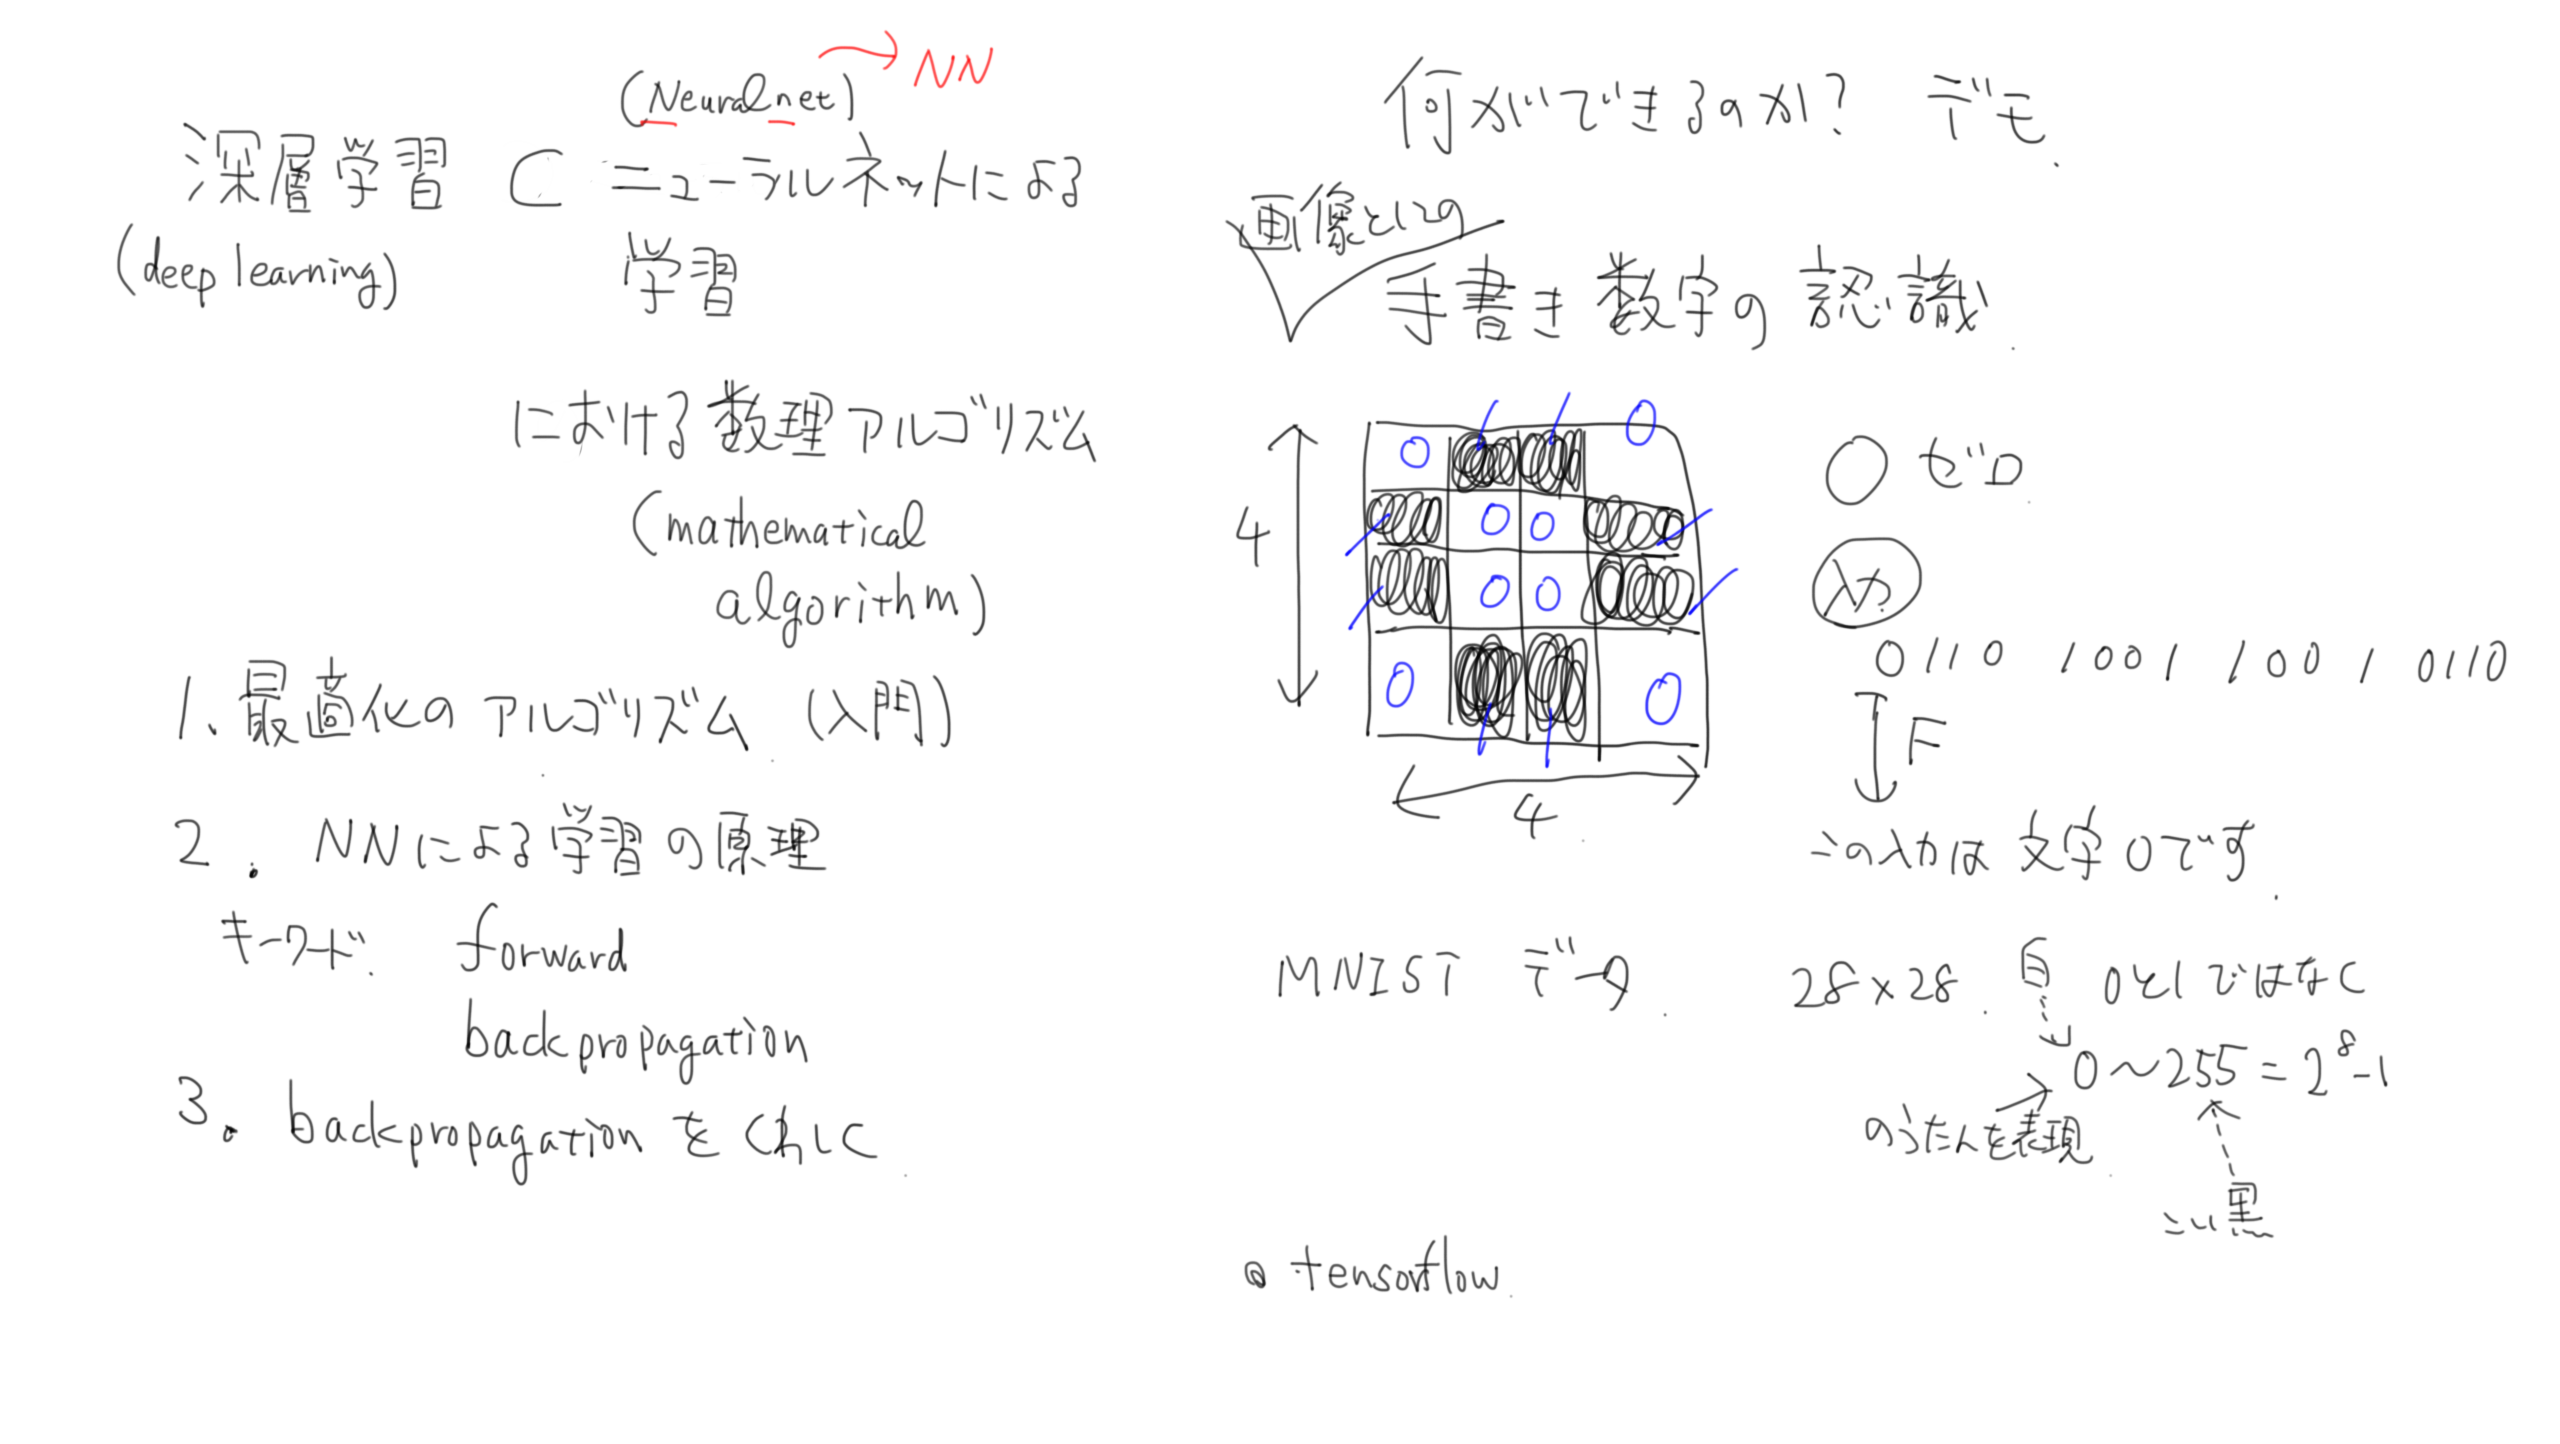 (Neural net) → NN
深層学習 ⊂ ニューラルネットによる
(deep learning) 学習
における数理アルゴリズム
(mathematical
algorithm)
1. 最適化のアルゴリズム (入門)
2. NNによる学習の原理
キーワード. forward
backpropagation
3. backpropagationをくわしく
何ができるのか? デモ.
画像としての
手書き数字の認識
0 1 1 0
1 0 0 1
1 0 0 1
0 1 1 0
4
4
0 ゼロ
入力
0110 1001 1001 0110
F
この入力は文字0です.
MNIST データ. 28×28. 白 0と1ではなく
0～255=2^8-1
のうたんを表現
こい黒
tensorflow.